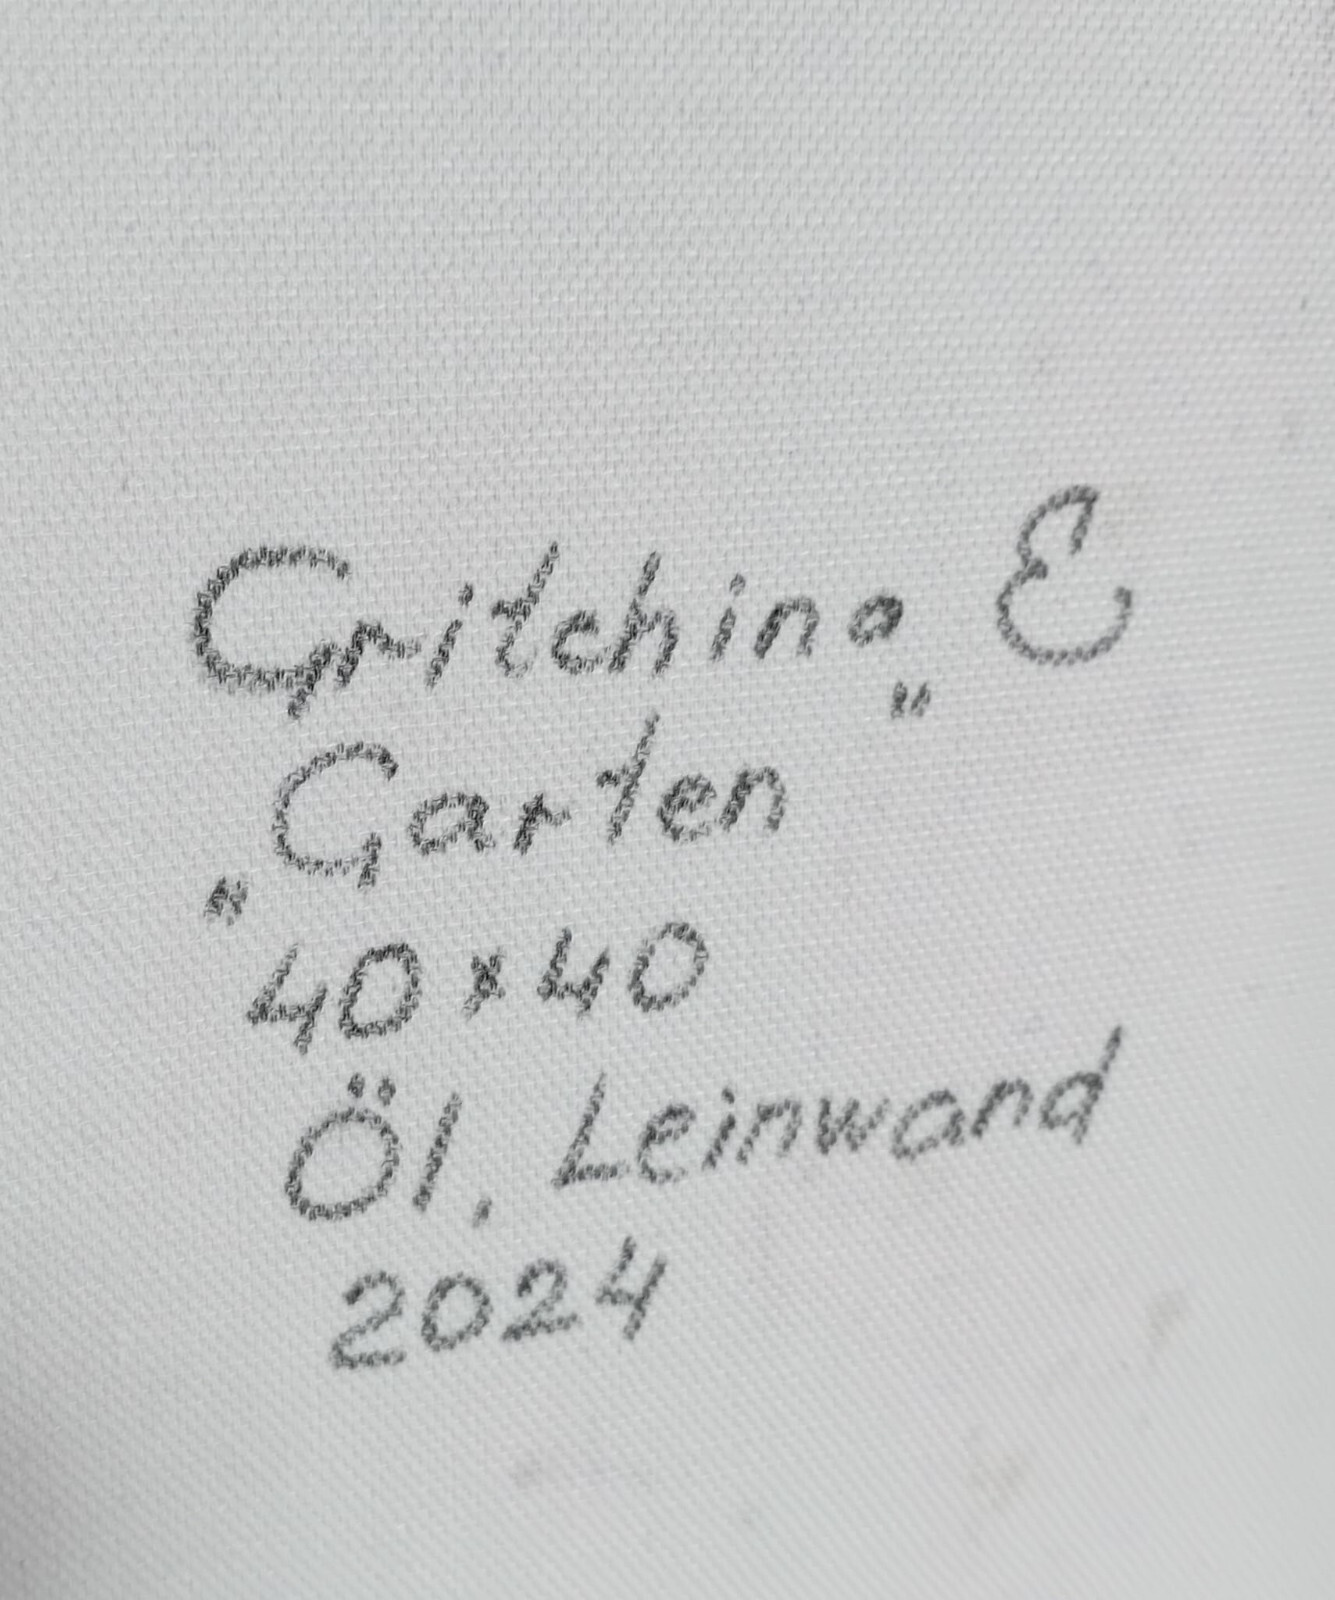 Gritchina E
„Garten"
40×40
Öl, Leinwand
2024